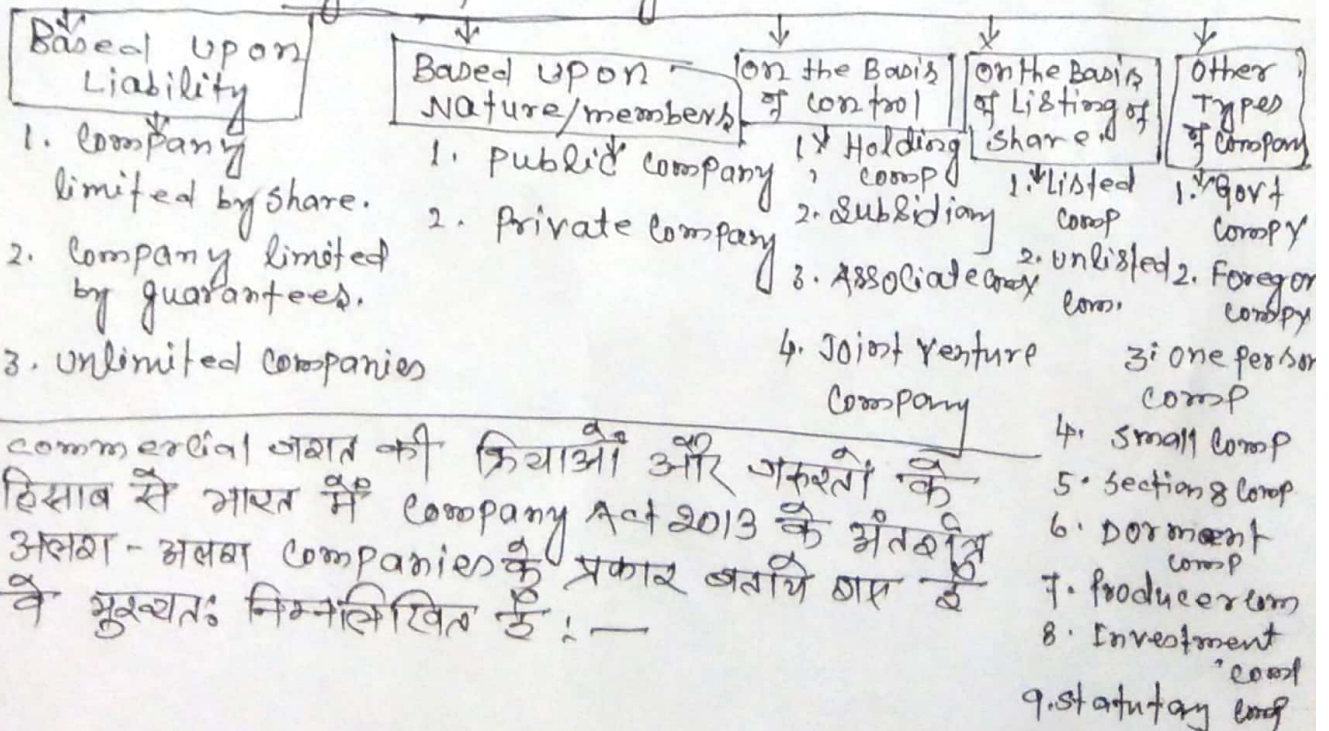 Based upon
Liability
1. Company
limited by share.
2. Company limited
by guarantees.
3. Unlimited companies
Based upon
Nature/members
1. Public company
2. Private Company
on the Basis
of control
1. Holding
comp
2. Subsidiary
3. Associate
4. Joint Venture
Company
on the Basis
of Listing of
share.
1. Listed
comp
2. unlisted
com.
Other
Types
of company
1. Govt
compy
2. Foregor
compy
3. one person
comp
4. Small Comp
5. Section 8 Comp
6. Dorment
comp
7. Producer com
8. Investment
comp
9. Statutary comp
commercial जगत की क्रियाओं और जरूरतों के
हिसाब से भारत में Company Act 2013 के अंतर्गत
अलग - अलग Companies के प्रकार बताये गए है
वे मुख्यतः निम्नलिखित है : —